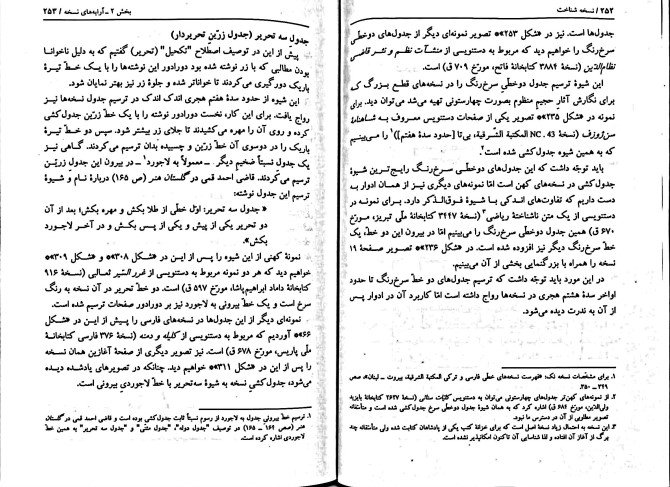 ۲۵۲ / نسخه شناخت
جدول‌ها است. نیز در «شکل ۲۵۳» تصویر نمونه‌ای دیگر از جدول‌های دوخطیِ
سرخ‌رنگ را خواهیم دید که مربوط به دستنویسی از منشآت نظم و نثر قاضی
نظام‌الدین (نسخهٔ ۳۸۸۴ کتابخانهٔ فاتح، مورّخ ۷۰۹ ق) است.
این شیوهٔ ترسیم جدول دوخطیِ سرخ‌رنگ را در نسخه‌های قطع بزرگ که
برای نگارش آثارِ حجیم منظوم بصورت چهارستونی تهیه می‌شد می‌توان دید. برای
نمونه در «شکل ۲۳۵» تصویر یکی از صفحات دستنویس معروف به شاهنامهٔ
سن‌ژوزف (نسخهٔ NC. 43 المکتبة الشرقیة، بی‌تا [حدود سدهٔ هفتم])¹ را می‌بینیم
که به همین شیوه جدول‌کشی شده است.²
باید توجّه داشت که این جدول‌های دوخطیِ سرخ‌رنگ رایج‌ترین شیوهٔ
جدول‌کشی در نسخه‌های کهن است امّا نمونه‌های دیگری نیز از همان ادوار به
دست داریم که تفاوت‌های اندکی با شیوهٔ فوق‌الذکر دارد. برای نمونه در
دستنویسی از یک متن ناشناختهٔ ریاضی³ (نسخهٔ ۳۴۴۷ کتابخانهٔ ملّی تبریز، مورّخ
۶۷۰ ق) همین جدول دوخطیِ سرخ‌رنگ را می‌بینیم امّا در بیرون این دو خط، یک
خط سرخ‌رنگ دیگر نیز افزوده شده است. در «شکل ۲۳۶» تصویر صفحهٔ ۱۹
نسخه را همراه با بازنمایی بخشی از آن می‌بینیم.
در این مورد باید توجّه داشت که ترسیم جدول‌های دو خطِ سرخ‌رنگ تا حدود
اواخر سدهٔ هشتم هجری در نسخه‌ها رواج داشته است امّا کاربرد آن در ادوار پس
از آن به ندرت دیده می‌شود.
۱. برای مشخّصات نسخه نک: «فهرست نسخه‌های خطّی فارسی و ترکی المکتبة الشرقیة، بیروت ـ لبنان»، صص
۳۴۹ ـ ۳۵۰.
۲. از نمونه‌های کهن‌تر جدول‌های چهارستونی می‌توان به دستنویس کلیّات سنائی (نسخهٔ ۲۶۲۷ کتابخانهٔ بایزید
ولی‌الدین، مورّخ ۶۸۴ ق) اشاره کرد که به همان شیوهٔ جدول دوخطیِ سرخ جدول‌کشی شده است و متأسفانه
تصویر مطلوبی از آن در دسترس ما نبود.
۳. این نسخه به احتمال زیاد نسخهٔ اصل است که برای خزانهٔ کتب یکی از پادشاهان کتابت شده ولی متأسفانه چند
برگ از آغاز آن افتاده و لذا شناسایی آن تاکنون امکانپذیر نشده است.
بخش ۲ ـ آرایه‌های نسخه / ۲۵۳
جدول سه تحریر (جدول زرّین تحریردار)
پیش از این در توصیف اصطلاح "تکحیل" (تحریر) گفتیم که به دلیل ناخوانا
بودن مطالبی که با زر نوشته شده بود دورادور این نوشته‌ها را با یک خط تیرهٔ
باریک دورگیری می‌کردند تا خواناتر شده و جلوهٔ زر نیز بهتر نمایان شود.
این شیوه از حدود سدهٔ هفتم هجری اندک اندک در ترسیم جدول نسخه‌ها نیز
رواج یافت. برای این کار، نخست دورادور نوشته را با یک خط زرّین جدول کشی
کرده و روی آن را مهره می‌کشیدند تا جلای زر بیشتر شود. سپس دو خط تیرهٔ
باریک را در دوسوی آن خط زرّین و چسبیده بدان ترسیم می‌کردند. گاهی نیز
یک جدول نسبتاً ضخیم دیگر ـ معمولاً به لاجورد¹ ـ در بیرون این جدول زرّین
ترسیم می‌کردند. قاضی احمد قمی در گلستان هنر (ص ۱۶۵) دربارهٔ نام و شیوهٔ
ترسیم این جدول نوشته:
« جدول سه تحریر: اوّل خطی از طلا بکش و مهره بکش؛ بعد از آن
دو تحریر یکی از پیش و یکی از پس بکش و در آخر لاجورد
بکش».
نمونهٔ کهنی از این شیوه را پس از این در «شکل ۳۰۸» و «شکل ۳۰۹»
خواهیم دید که هر دو نمونه مربوط به دستنویسی از غررالسّیر ثعالبی (نسخهٔ ۹۱۶
کتابخانهٔ داماد ابراهیم‌پاشا، مورّخ ۵۹۷ ق) است. دو خط تحریر در آن به رنگ
سرخ است و یک خط بیرونی به لاجورد نیز بر دورادور صفحات ترسیم شده است.
نمونه‌ای دیگر از این جدول‌ها در نسخه‌های فارسی را پیش از این در «شکل
۶۶» آوردیم که مربوط به دستنویسی از کلیله و دمنه (نسخهٔ ۳۷۶ فارسی کتابخانهٔ
ملّی پاریس، مورّخ ۶۷۸ ق) است. نیز تصویر دیگری از صفحهٔ آغازین همان نسخه
را پس از این در «شکل ۳۱۱» خواهیم دید. چنانکه در تصویرهای یادشده دیده
می‌شود، جدول‌کشی نسخه به شیوهٔ سه‌تحریر با خط لاجوردیِ بیرونی است.
۱. ترسیم خطِ بیرونی جدول به لاجورد از رسوم نسبتاً ثابت جدول‌کشی بوده است و قاضی احمد قمی در گلستان
هنر (صص ۱۶۴ ـ ۱۶۵) در توصیف "جدول دوله"، "جدول مثنّی" و "جدول سه تحریر" به همین خط
لاجوردی اشاره کرده است.